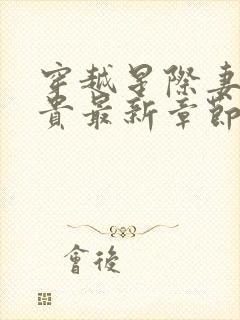 穿越星際妻
貴最新章節
會後